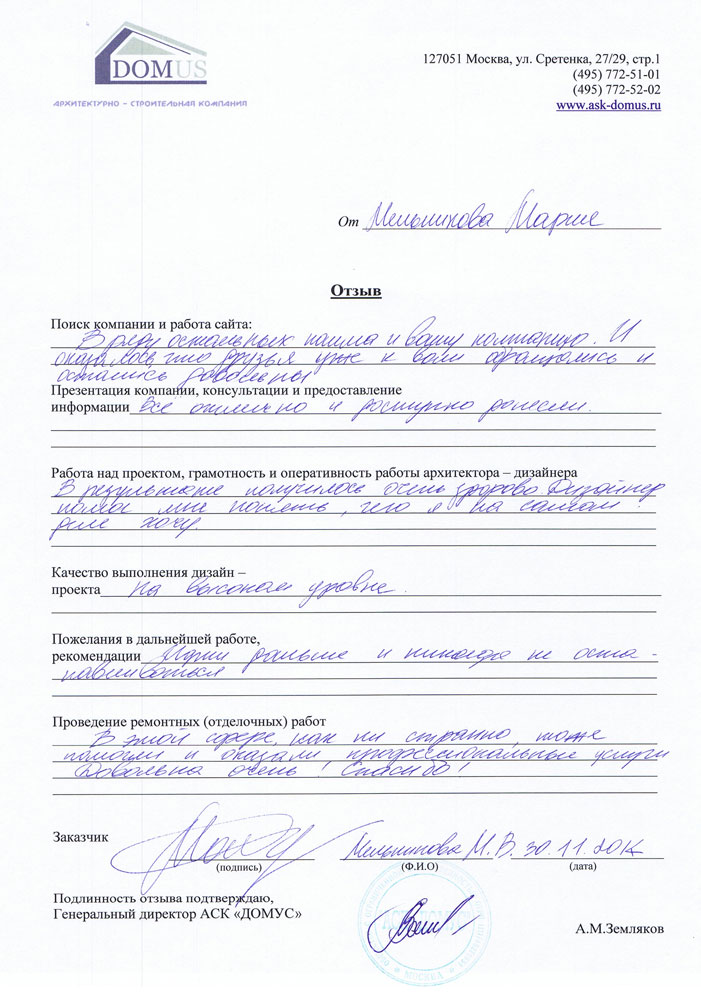 DOMUS
АРХИТЕКТУРНО - СТРОИТЕЛЬНАЯ КОМПАНИЯ
127051 Москва, ул. Сретенка, 27/29, стр.1
(495) 772-51-01
(495) 772-52-02
www.ask-domus.ru
От Мельникова Мария
Отзыв
Поиск компании и работа сайта:
В ряду остальных нашла и вашу компанию. И
оказалось что друзья уже к вам обращались и
остались довольны
Презентация компании, консультации и предоставление
информации Всё отлично и доступно донесли.
Работа над проектом, грамотность и оперативность работы архитектора – дизайнера
В результате получилось очень здорово. Дизайнер
помог мне понять, чего я на самом
деле хочу.
Качество выполнения дизайн –
проекта на высоком уровне.
Пожелания в дальнейшей работе,
рекомендации Идти дальше и никогда не оста -
навливаться
Проведение ремонтных (отделочных) работ
В этой сфере, как ни странно, тоже
помогли и оказали профессиональные услуги
Довольна очень! Спасибо!
Заказчик Мельникова М.В. 30.11.2014
(подпись) (Ф.И.О) (дата)
Подлинность отзыва подтверждаю,
Генеральный директор АСК «ДОМУС»
А.М.Земляков
МОСКВА